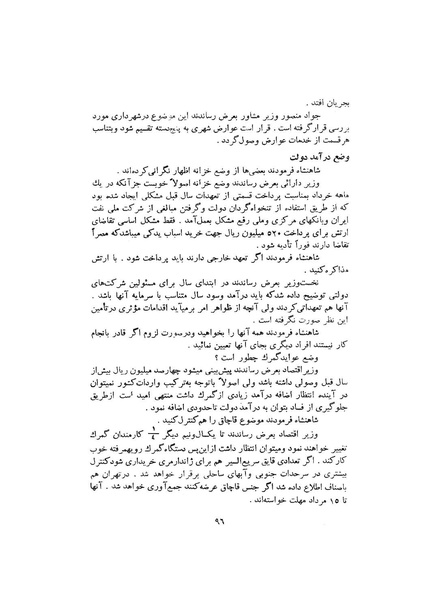 بجریان افتد .
جواد منصور وزیر مشاور بعرض رساندند این موضوع درشهرداری مورد
بررسی قرارگرفته است . قرار است عوارض شهری به پنج‌دسته تقسیم شود وبتناسب
هرقسمت از خدمات عوارض وصول‌گردد .
وضع درآمد دولت
شاهنشاه فرمودند بعضی‌ها از وضع خزانه اظهار نگرانی‌کرده‌اند .
وزیر دارائی بعرض رساندند وضع خزانه اصولاً خوبست جزآنکه در یك
ماهه خرداد بمناسبت پرداخت قسمتی از تعهدات سال قبل مشکلی ایجاد شده بود
که از طریق استفاده از تنخواه‌گردان دولت وگرفتن مبالغی از شرکت ملی نفت
ایران وبانکهای مرکزی وملی رفع مشکل بعمل‌آمد . فقط مشکل اساسی تقاضای
ارتش برای پرداخت ۵۲۰ میلیون ریال جهت خرید اسباب یدکی میباشدکه مصراً
تقاضا دارند فوراً تأدیه شود .
شاهنشاه فرمودند اگر تعهد خارجی دارند باید پرداخت شود . با ارتش
مذاکره‌کنید .
نخست‌وزیر بعرض رساندند در ابتدای سال برای مسئولین شرکت‌های
دولتی توضیح داده شدکه باید درآمد وسود سال متناسب با سرمایه آنها باشد .
آنها هم تعهداتی‌کردند ولی آنچه از ظواهر امر برمیآید اقدامات مؤثری درتأمین
این نظر صورت نگرفته است .
شاهنشاه فرمودند همه آنها را بخواهید ودرصورت لزوم اگر قادر بانجام
کار نیستند افراد دیگری بجای آنها تعیین نمائید .
وضع عوایدگمرك چطور است ؟
وزیراقتصاد بعرض رساندند پیش‌بینی میشود چهارصد میلیون ریال بیش‌از
سال قبل وصولی داشته باشد ولی اصولاً باتوجه به‌ترکیب واردات‌کشور نمیتوان
در آینده انتظار اضافه درآمد زیادی ازگمرك داشت منتهی امید است ازطریق
جلوگیری از فساد بتوان به درآمد دولت تاحدودی اضافه نمود .
شاهنشاه فرمودند موضوع قاچاق را هم‌کنترل‌کنید .
وزیر اقتصاد بعرض رساندند تا یکسال‌ونیم دیگر ۱/۴ کارمندان گمرك
تغییر خواهند نمود ومیتوان انتظار داشت ازاین‌پس دستگاه‌گمرك رویهمرفته خوب
کارکند . اگر تعدادی قایق سریع‌السیر هم برای ژاندارمری خریداری شودکنترل
بیشتری در سرحدات جنوبی وآبهای ساحلی برقرار خواهد شد . درتهران هم
باصناف اطلاع داده شد اگر جنس قاچاق عرضه‌کنند جمع‌آوری خواهد شد . آنها
تا ۱۵ مرداد مهلت خواسته‌اند .
۹۶